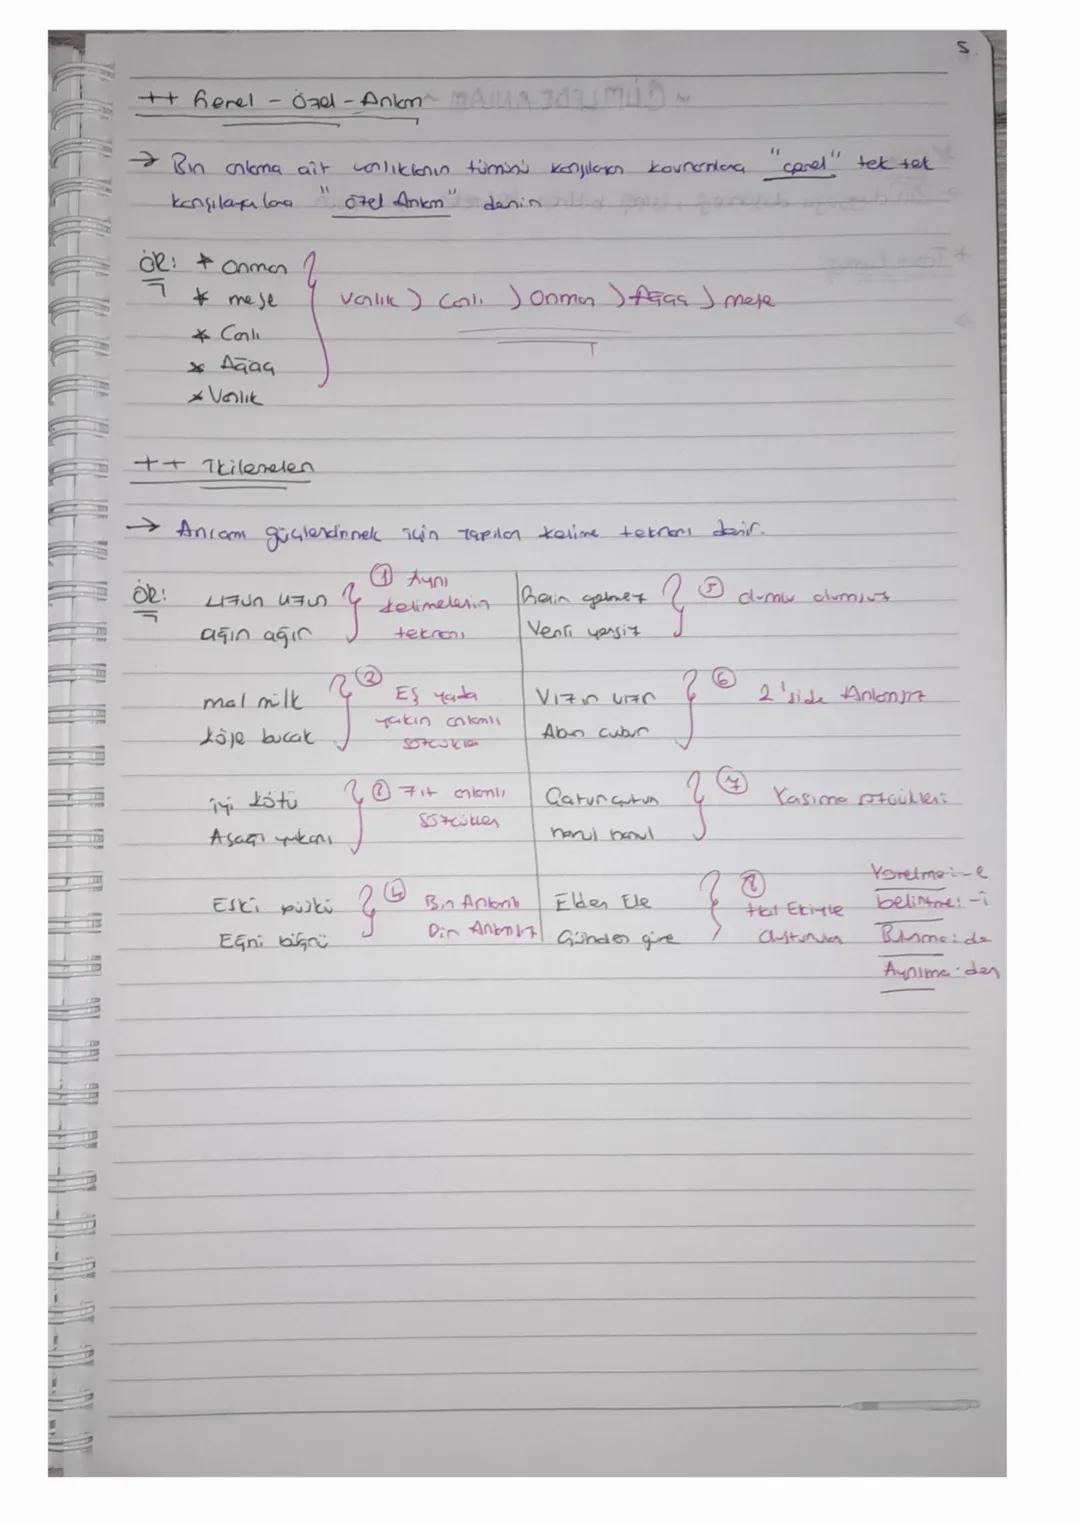 5
++ Genel - Özel - Anlam
→ Bir anlama ait varlıkların tümünü karşılayan kavramlara "genel" tek tek
karşılayanlara "özel Anlam" denir
ÖR: * Orman
* meşe
* Canlı
* Ağaç
* Varlık
Varlık ) Canlı ) Orman ) Ağaç ) meşe
++ İkilemeler
→ Anlam güçlendirmek için yapılan kelime tekrarı denir.
ÖR: uzun uzun
ağır ağır
① Aynı
kelimelerin
tekrarı
mal mülk
köşe bucak
② Eş yada
yakın anlamlı
sözcükler
iyi kötü
Aşağı yukarı
③ Zıt anlamlı
sözcükler
Eski püskü
Eğri büğrü
④ Biri Anlamlı
Diri Anlamsız
gelmez
Yerli yersiz
⑤ olumlu olumsuz
Vızır vızır
Abur cubur
⑥ 2'side Anlamsız
Çatur çutur
harıl harıl
⑦ Yasıma sözcükleri
Elden Ele
Günden güne
⑧
Hal Ekiyle
oluşturulan
Yönelme: -e
belirtme: -i
Bulunma: da
Ayrılma: den